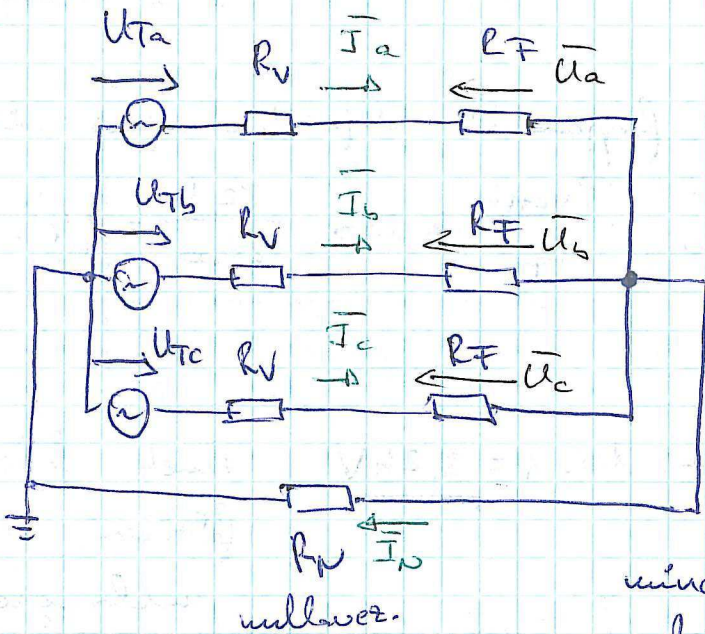 U_Ta R_V I̅_a R_F U̅_a
U_Tb R_V I̅_b R_F U̅_b
U_Tc R_V I̅_c R_F U̅_c
R_N I̅_N
nullavez.